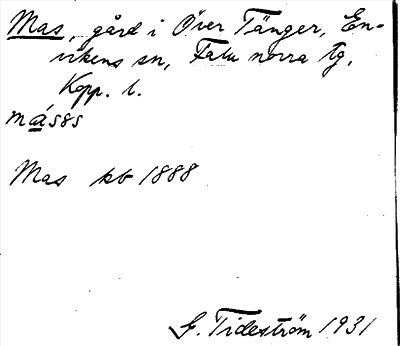 Mas, gård i Över Tänger, En-
vikens sn, Falu norra tg,
Kopp. l.
måsss
Mas kb 1888
G. Tideström 1931